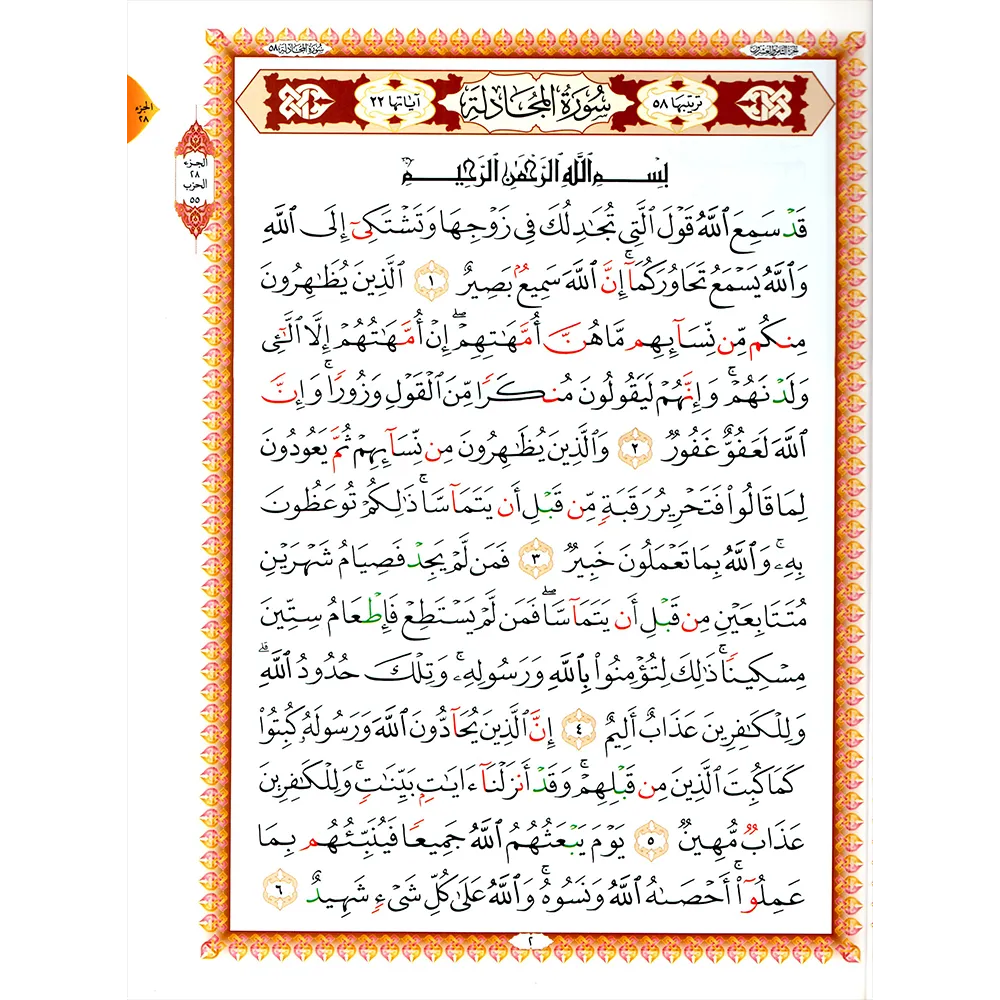 سُورَةُ المُجَادلة ٥٨
الجزء الثامن والعشرون
ترتيبها ٥٨
سُورَةُ المُجَادلة
آياتها ٢٢
الجزء
٢٨
الجزء
٢٨
الحزب
٥٥
بِسْمِ ٱللَّهِ ٱلرَّحْمَٰنِ ٱلرَّحِيمِ
قَدْ سَمِعَ ٱللَّهُ قَوْلَ ٱلَّتِي تُجَٰدِلُكَ فِي زَوْجِهَا وَتَشْتَكِيٓ إِلَى ٱللَّهِ
وَٱللَّهُ يَسْمَعُ تَحَاوُرَكُمَآۚ إِنَّ ٱللَّهَ سَمِيعُۢ بَصِيرٌ ١ ٱلَّذِينَ يُظَٰهِرُونَ
مِنكُم مِّن نِّسَآئِهِم مَّا هُنَّ أُمَّهَٰتِهِمْۖ إِنْ أُمَّهَٰتُهُمْ إِلَّا ٱلَّٰٓـِٔي
وَلَدْنَهُمْۚ وَإِنَّهُمْ لَيَقُولُونَ مُنكَرًا مِّنَ ٱلْقَوْلِ وَزُورًاۚ وَإِنَّ
ٱللَّهَ لَعَفُوٌّ غَفُورٌ ٢ وَٱلَّذِينَ يُظَٰهِرُونَ مِن نِّسَآئِهِمْ ثُمَّ يَعُودُونَ
لِمَا قَالُوا۟ فَتَحْرِيرُ رَقَبَةٍ مِّن قَبْلِ أَن يَتَمَآسَّاۚ ذَٰلِكُمْ تُوعَظُونَ
بِهِۦۚ وَٱللَّهُ بِمَا تَعْمَلُونَ خَبِيرٌ ٣ فَمَن لَّمْ يَجِدْ فَصِيَامُ شَهْرَيْنِ
مُتَتَابِعَيْنِ مِن قَبْلِ أَن يَتَمَآسَّاۖ فَمَن لَّمْ يَسْتَطِعْ فَإِطْعَامُ سِتِّينَ
مِسْكِينًاۚ ذَٰلِكَ لِتُؤْمِنُوا۟ بِٱللَّهِ وَرَسُولِهِۦۚ وَتِلْكَ حُدُودُ ٱللَّهِۗ
وَلِلْكَٰفِرِينَ عَذَابٌ أَلِيمٌ ٤ إِنَّ ٱلَّذِينَ يُحَآدُّونَ ٱللَّهَ وَرَسُولَهُۥ كُبِتُوا۟
كَمَا كُبِتَ ٱلَّذِينَ مِن قَبْلِهِمْۚ وَقَدْ أَنزَلْنَآ ءَايَٰتِۭ بَيِّنَٰتٍۚ وَلِلْكَٰفِرِينَ
عَذَابٌ مُّهِينٌ ٥ يَوْمَ يَبْعَثُهُمُ ٱللَّهُ جَمِيعًا فَيُنَبِّئُهُم بِمَا
عَمِلُوٓا۟ۚ أَحْصَىٰهُ ٱللَّهُ وَنَسُوهُۚ وَٱللَّهُ عَلَىٰ كُلِّ شَيْءٍ شَهِيدٌ ٦
٢